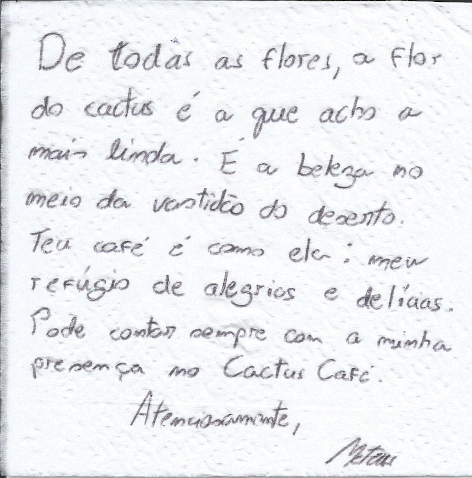 De todas as flores, a flor
do cactus é a que acho a
mais linda. É a beleza no
meio da vastidão do deserto.
Teu café é como ela: meu
refúgio de alegrias e delícias.
Pode contar sempre com a minha
presença no Cactus Café.
Atenciosamente,
Mateus